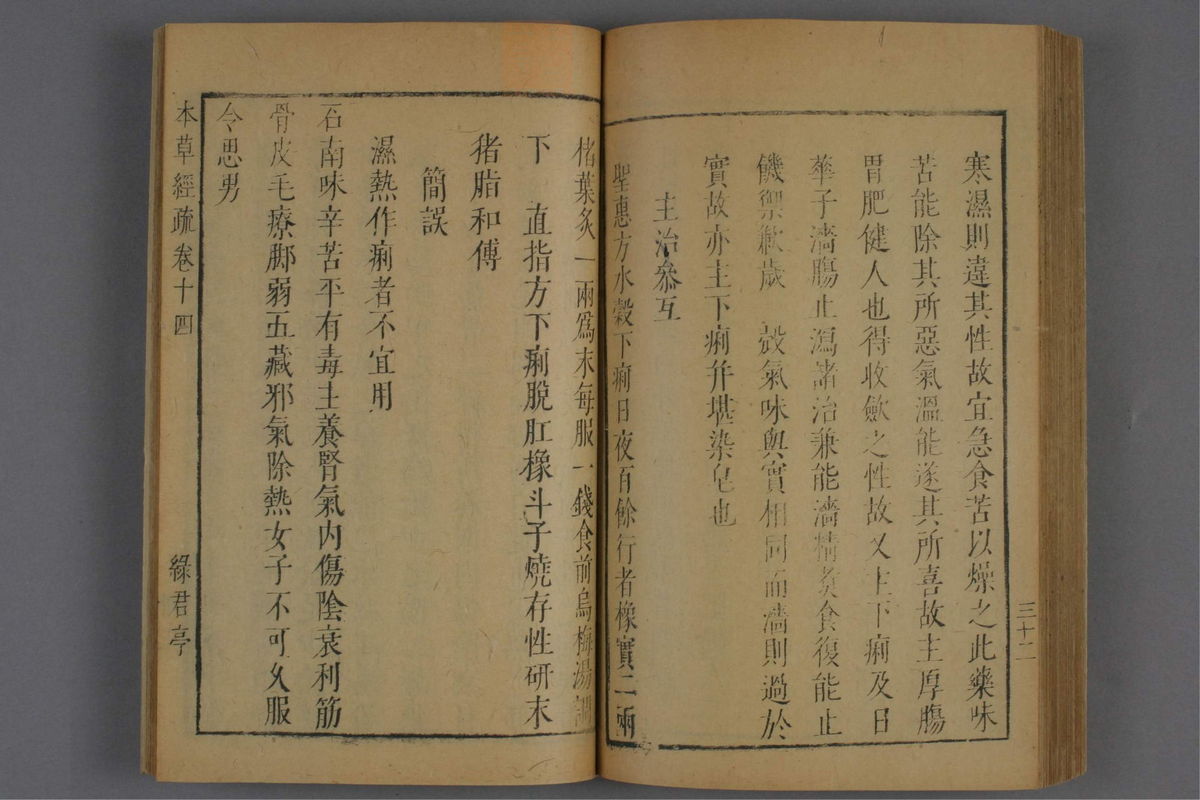 三十二
寒濕則違其性故宜急食苦以燥之此藥味
苦能除其所惡氣溫能遂其所喜故主厚腸
胃肥健人也得收歛之性故又主下痢及日
華子濇腸止瀉諸治兼能濇精煑食復能止
饑禦歉歲 殻氣味與實相同而濇則過於
實故亦主下痢并堪染皂也
主治叅互
聖惠方水穀下痢日夜百餘行者橡實二兩
楮葉炙一兩爲末每服一錢食前烏梅湯調
下 直指方下痢脫肛橡斗子燒存性研末
猪脂和傅
簡誤
濕熱作痢者不宜用
石南味辛苦平有毒主養腎氣内傷陰衰利筋
骨皮毛療脚弱五藏邪氣除熱女子不可乆服
令思男
本草經疏 卷十四 綠君亭